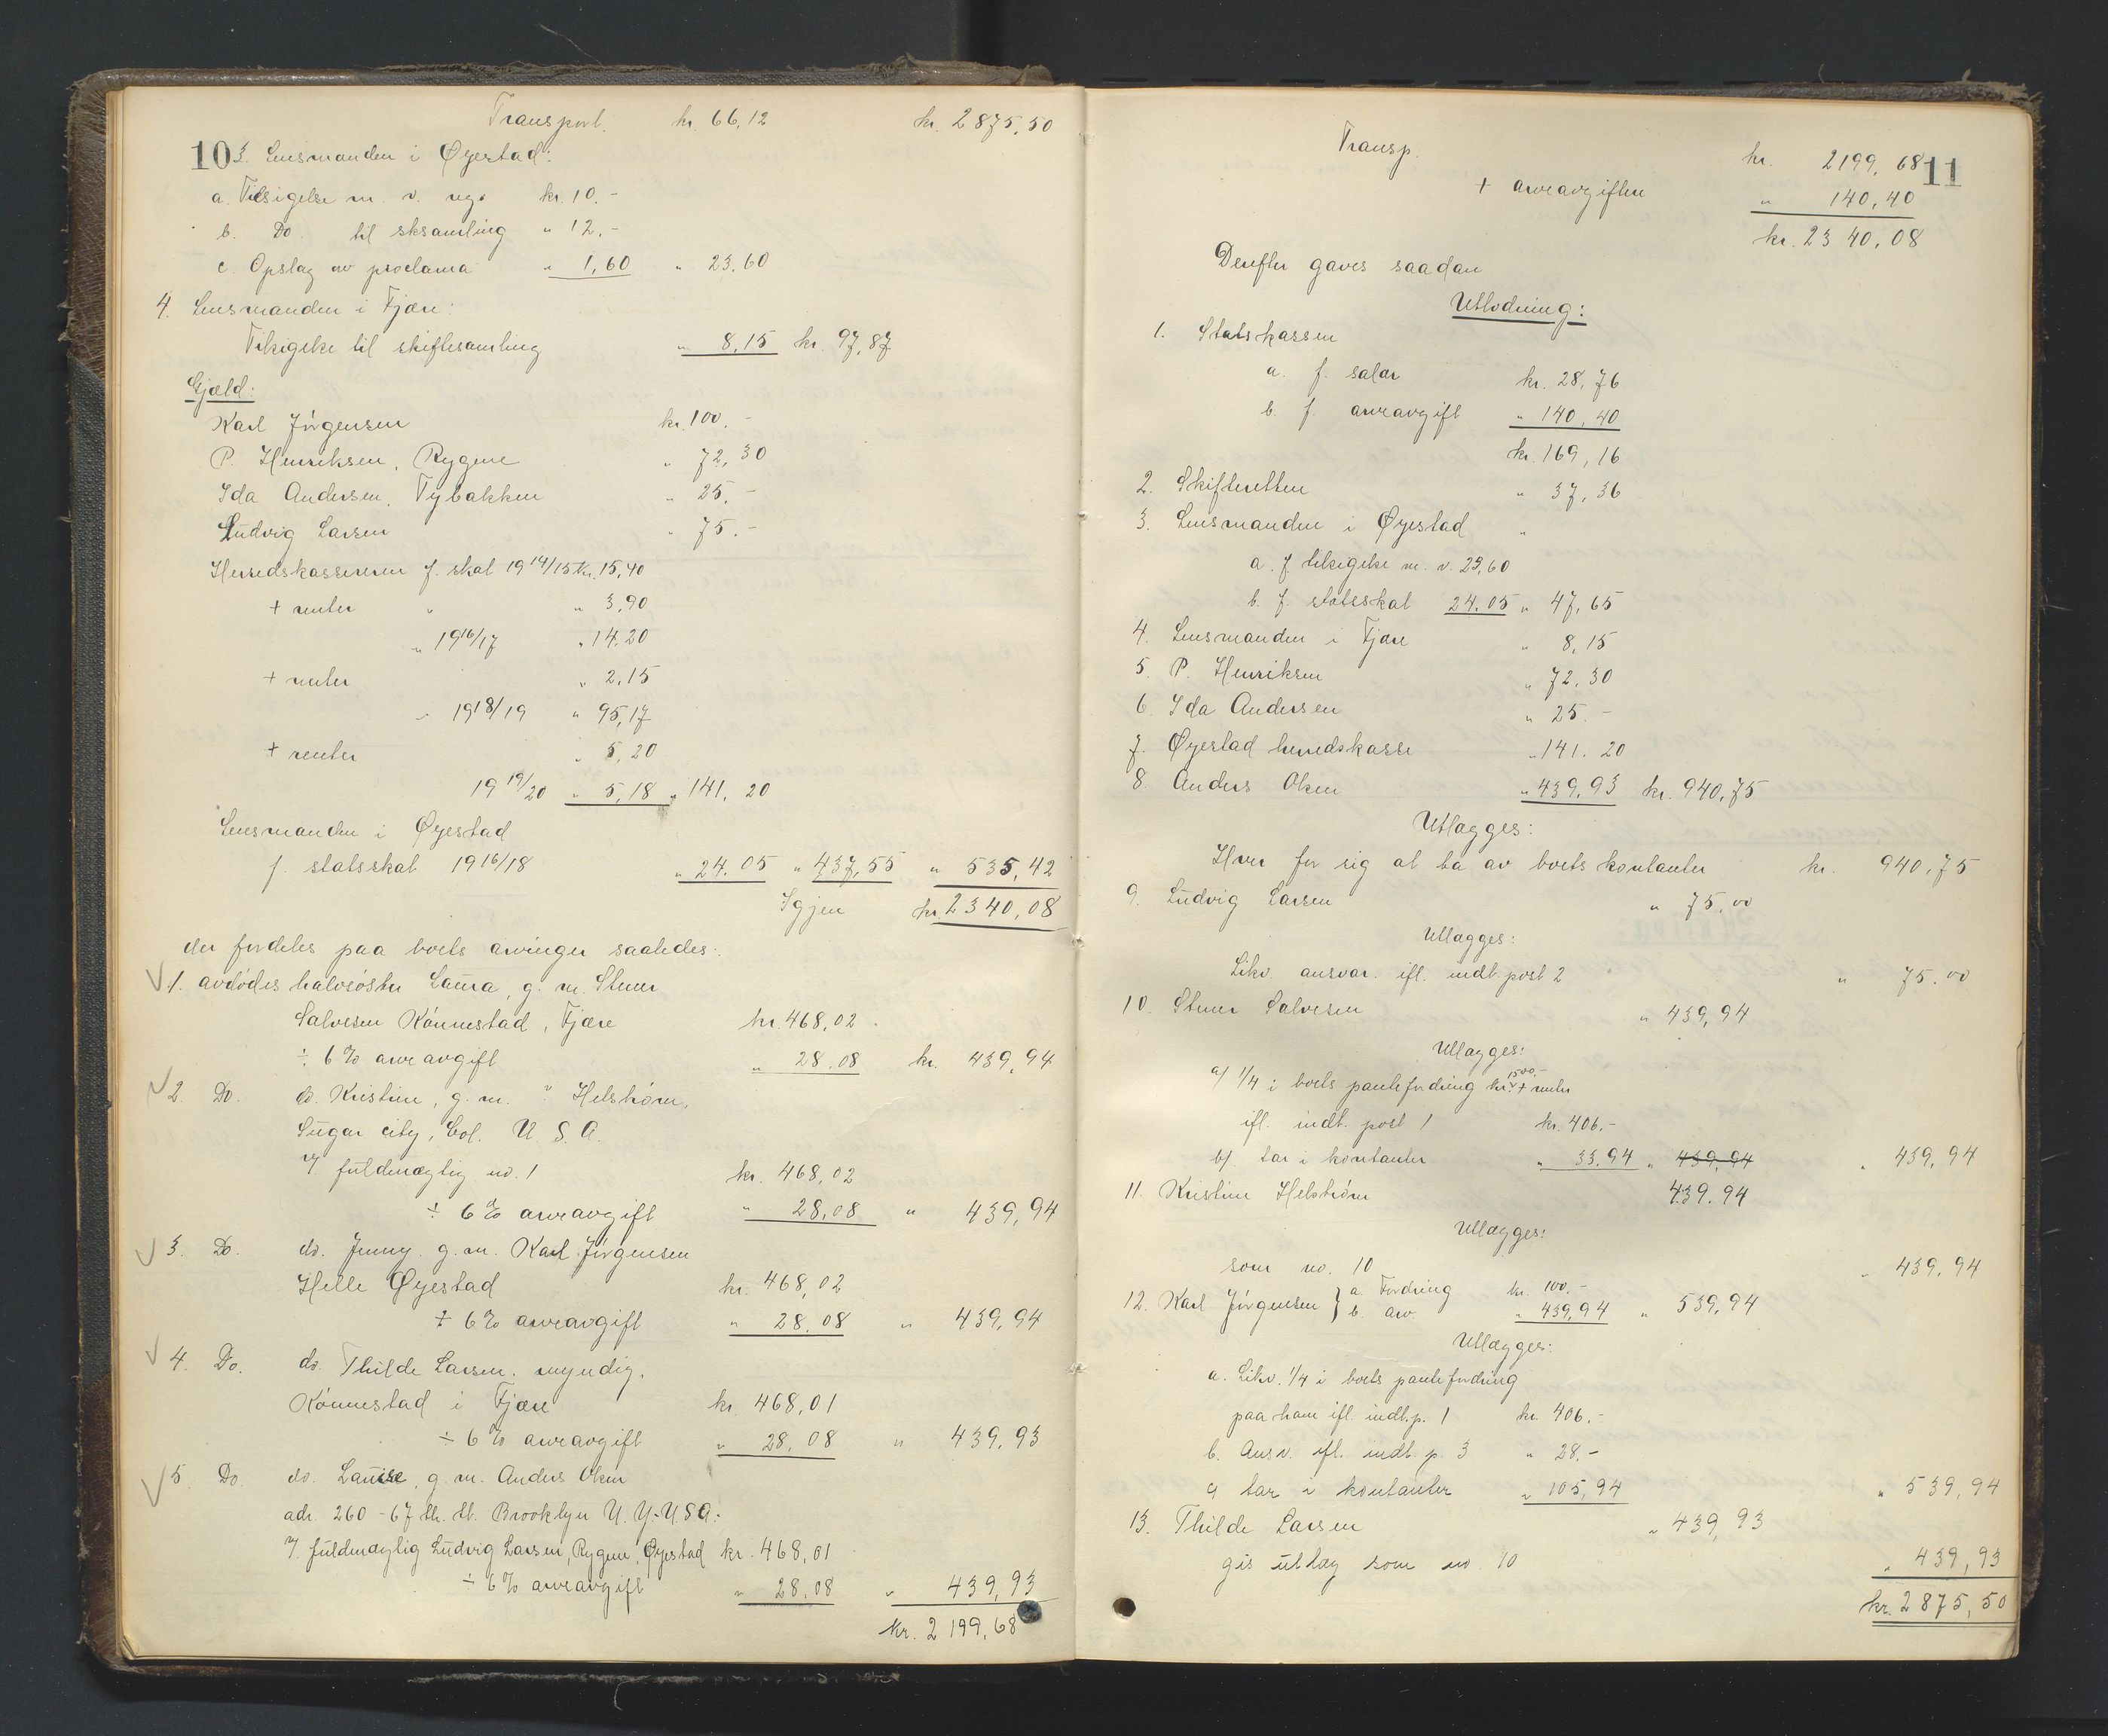 Transport. kr. 66,12 kr. 2875,50
10 3. Lensmanden i Øyestad:
a. Tilsigelse m. v. reg. kr. 10.-
b. Do. til sksamling " 12.-
c. Opslag av proclama " 1,60 " 23,60
4. Lensmanden i Fjære:
Tilsigelse til skiftesamling " 8,15 kr. 97,87
Gjæld:
Karl Jörgensen kr. 100.-
P. Henriksen, Rygene " 72,30
Ida Andersen, Tybakken " 25.-
Ludvig Larsen " 75.-
Herredskassereren f. skat 1914/15 kr. 15,40
+ renter " " 3,90
" 1916/17 " 14,20
+ renter " 2,15
" 1918/19 " 95,17
+ renter " 5,20
1919/20 " 5,18 " 141,20
Lensmanden i Øyestad
f. statsskat 1916/18 " 24.05 " 437,55 " 535,42
Igjen kr. 2340,08
der fordeles paa boets arvinger saaledes:
1. avdödes halvsöster Laura, g. m. Stener
Salvesen Rönnestad, Fjære kr. 468,02
÷ 6% arveavgift " 28,08 kr. 439,94
2. Do. do. Kristine, g. m. ? Helström,
Sugar city, Col. U. S. A.
v/ fuldmægtig no. 1 kr. 468,02
÷ 6% arveavgift " 28,08 " 439,94
3. Do. do. Jenny, g. m. Karl Jörgensen
Helle Øyestad kr. 468,02
÷ 6% arveavgift " 28,08 " 439,94
4. Do. do. Thilde Larsen, myndig,
Rönnestad i Fjære kr. 468,01
÷ 6% arveavgift " 28,08 " 439,93
5. Do. do. Lauise, g. m. Anders Olsen
adr. 260 - 67 th. st. Brooklyn N. Y. U.S.A.
v/ fuldmægtig Ludvig Larsen, Rygene, Øyestad kr. 468,01
÷ 6% arveavgift " 28,08 " 439,93
kr. 2199,68
Transp. kr. 2199,68 11
+ arveavgiften " 140,40
kr. 2340,08
Derefter gaves saadan
Utlodning:
1. Statskassen
a. f. salær kr. 28,76
b. f. arveavgift " 140,40
kr. 169,16
2. Skifteretten " 37,36
3. Lensmanden i Øyestad "
a. f. tilsigelse m. v. 23,60
b. f. statsskat 24.05 " 47,65
4. Lensmanden i Fjære " 8,15
5. P. Henriksen " 72.30
6. Ida Andersen " 25.-
7. Øyestad herredskasse " 141.20
8. Anders Olsen " 439,93 kr. 940,75
Utlægges:
Hver for sig at ta av boets kontanter kr. 940,75
9. Ludvig Larsen " 75,00
Utlægges:
Likv. ansvar. ifl. indt. post 2 " 75.00
10. Stener Salvesen " 439,94
Utlægges:
a/ 1/4 i boets pantefordring kr. 1500.- + renter
ifl. indt. post 1 kr. 406.-
b/. tar i kontanter " 33,94 " 439,94 " 439,94
11. Kristine Helström 439.94
Utlægges:
som no. 10 " 439,94
12. Karl Jörgensen } a. Fordring kr. 100.-
b. arv. " 439,94 " 539,94
Utlægges:
a. Likv. 1/4 i boets pantefordring
paa ham ifl. indt. p. 1 kr. 406.-
b. Ansv. ifl. indt. p. 3 " 28.-
c/ tar i kontanter " 105,94 " 539,94
13. Thilde Larsen " 439,93
gis utlæg som no. 10 " 439,93
kr. 2875,50